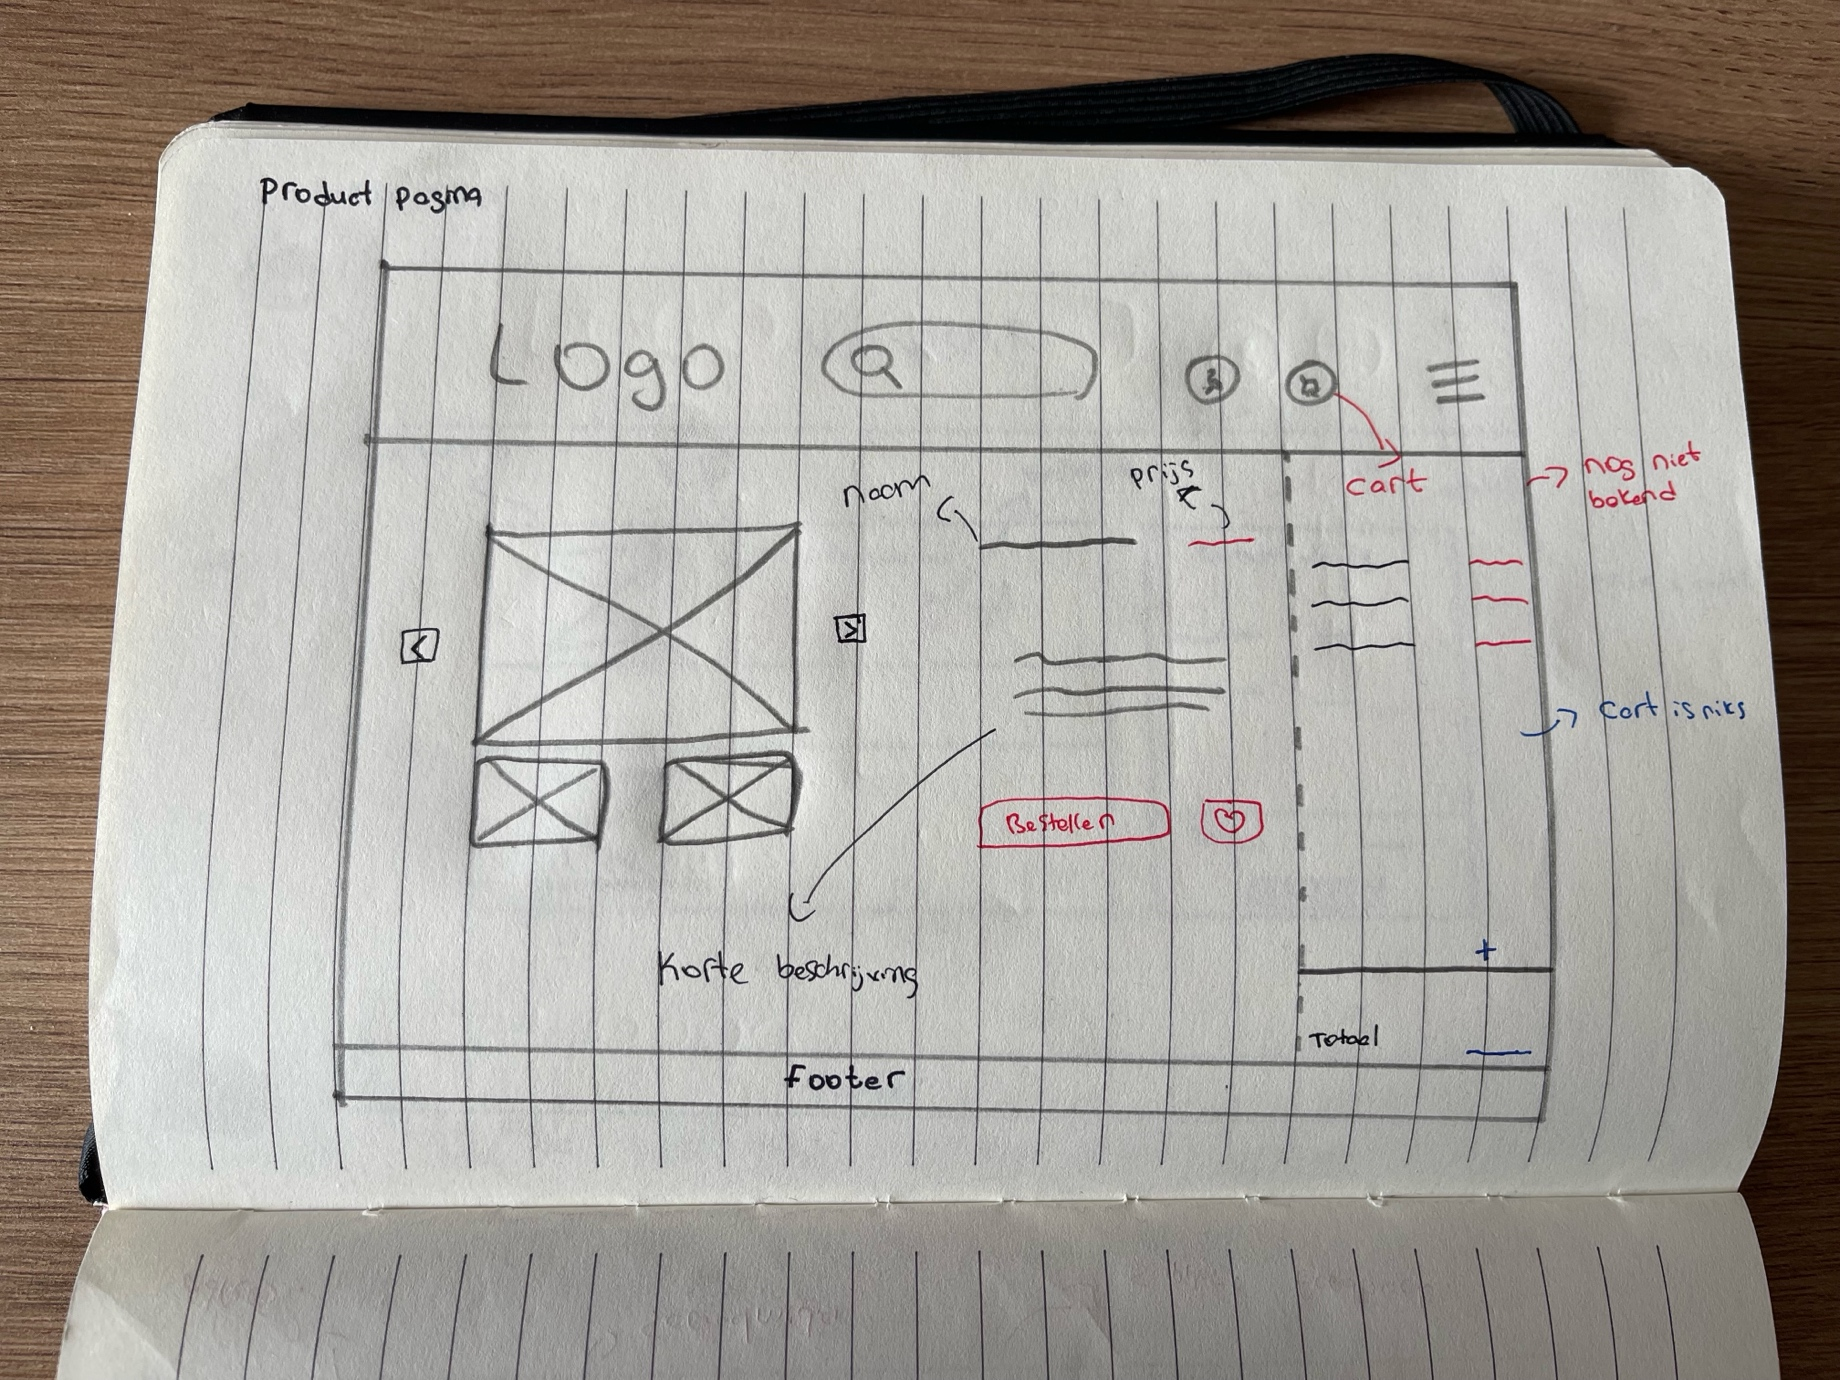 Product pagina
Logo
naam
prijs
cart
nog niet
bekend
<
>
cart is niks
Bestellen
Korte beschrijving
+
Totaal
Footer